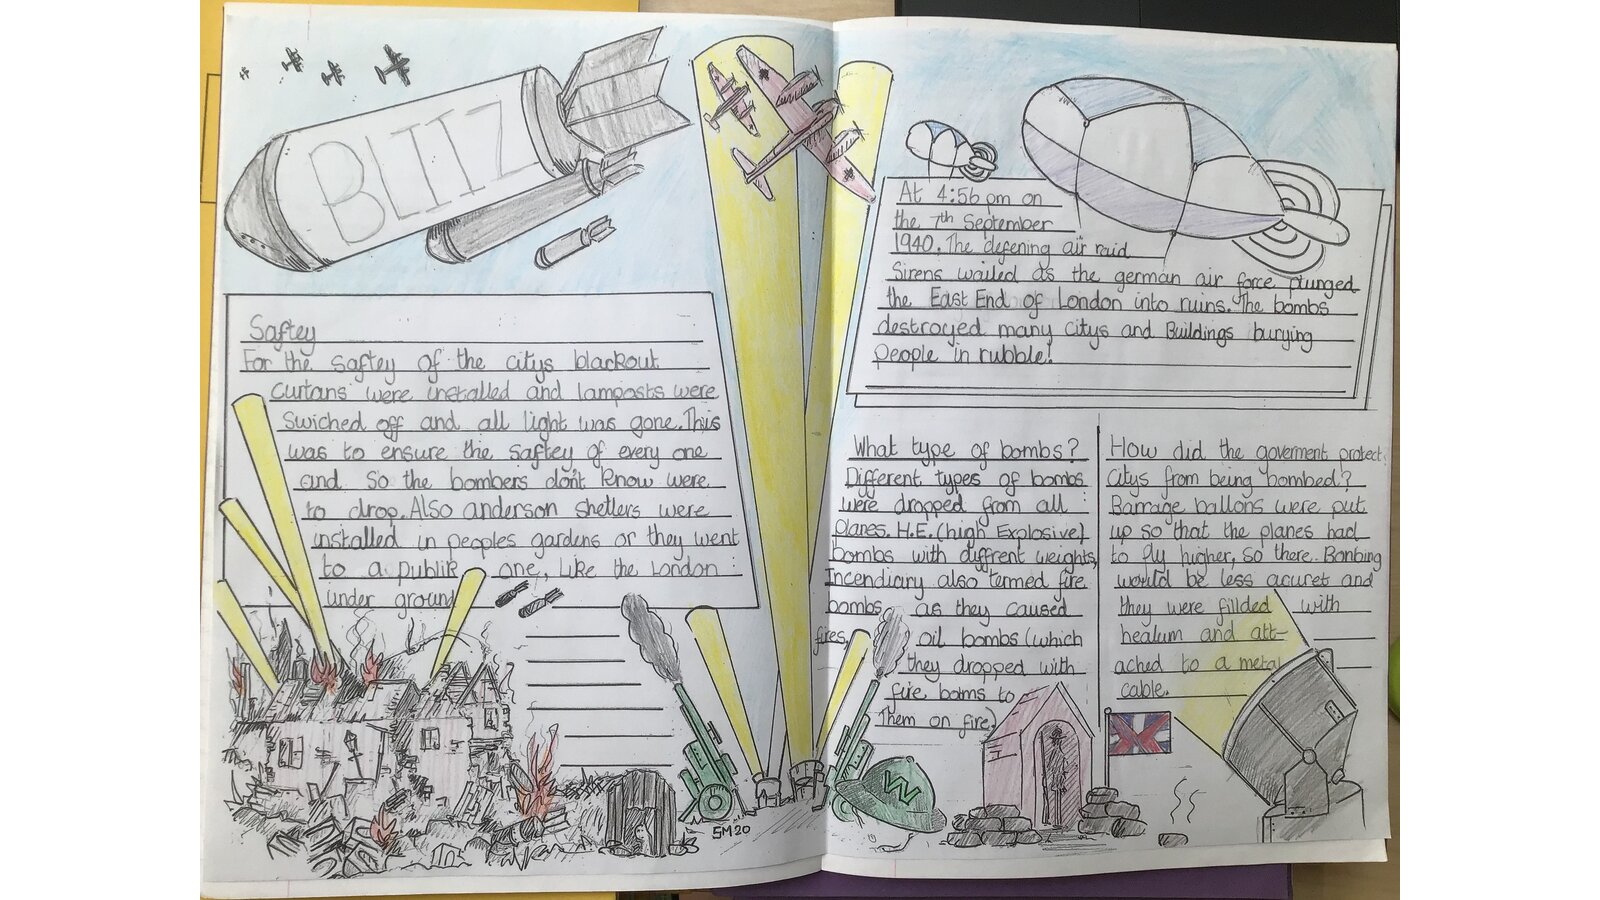 BLITZ
Saftey
For the saftey of the citys blackout
curtans were installed and lamposts were
swiched off and all light was gone. This
was to ensure the saftey of every one
and so the bombers don't know were
to drop. Also anderson shelters were
installed in peoples gardens or they went
to a publik one, like the London
under ground
SM20
At 4:56 pm on
the 7th September
1940. The defening air raid
Sirens wailed as the german air force plunged
the East End of London into ruins. The bombs
destroyed many citys and Buildings burying
people in rubble!
What type of bombs?
Different types of bombs
were dropped from all
planes. H.E. (high Explosive)
bombs with diffrent weights,
Incendiary also termed fire
bombs as they caused
fires, oil bombs (which
they dropped with
fire boms to
them on fire)
W
How did the goverment protect
Citys from being bombed?
Barrage ballons were put
up so that the planes had
to fly higher, so there. Bonbing
would be less acuret and
they were fillded with
healum and att-
ached to a metal
cable.